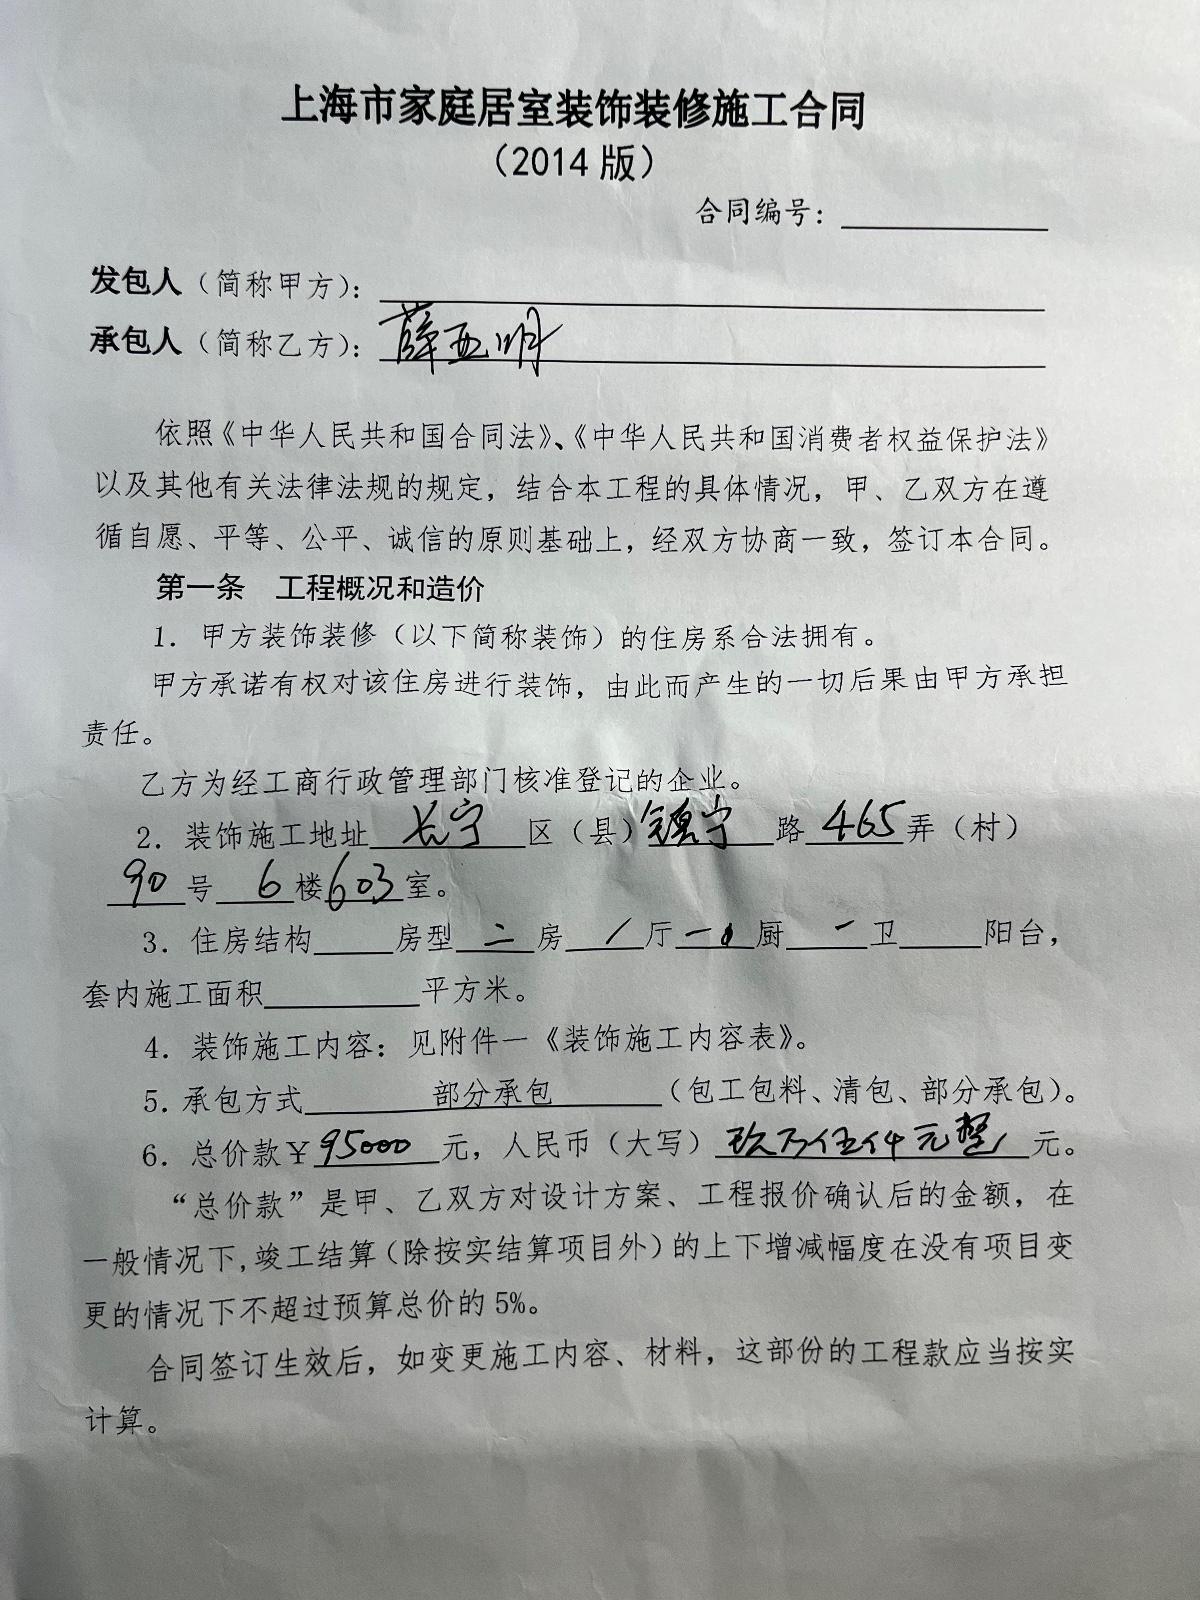 上海市家庭居室装饰装修施工合同
（2014 版）
合同编号：
发包人（简称甲方）：
承包人（简称乙方）：薛亚明
依照《中华人民共和国合同法》、《中华人民共和国消费者权益保护法》
以及其他有关法律法规的规定，结合本工程的具体情况，甲、乙双方在遵
循自愿、平等、公平、诚信的原则基础上，经双方协商一致，签订本合同。
第一条　工程概况和造价
1．甲方装饰装修（以下简称装饰）的住房系合法拥有。
甲方承诺有权对该住房进行装饰，由此而产生的一切后果由甲方承担
责任。
乙方为经工商行政管理部门核准登记的企业。
2．装饰施工地址 长宁 区（县）镇宁 路 465 弄（村）
90 号 6 楼 603 室。
3．住房结构 房型 二 房 / 厅 一 厨 一 卫 阳台，
套内施工面积 平方米。
4．装饰施工内容：见附件一《装饰施工内容表》。
5．承包方式 部分承包 （包工包料、清包、部分承包）。
6．总价款￥95000 元，人民币（大写）玖万伍仟元整 元。
“总价款”是甲、乙双方对设计方案、工程报价确认后的金额，在
一般情况下，竣工结算（除按实结算项目外）的上下增减幅度在没有项目变
更的情况下不超过预算总价的 5%。
合同签订生效后，如变更施工内容、材料，这部份的工程款应当按实
计算。